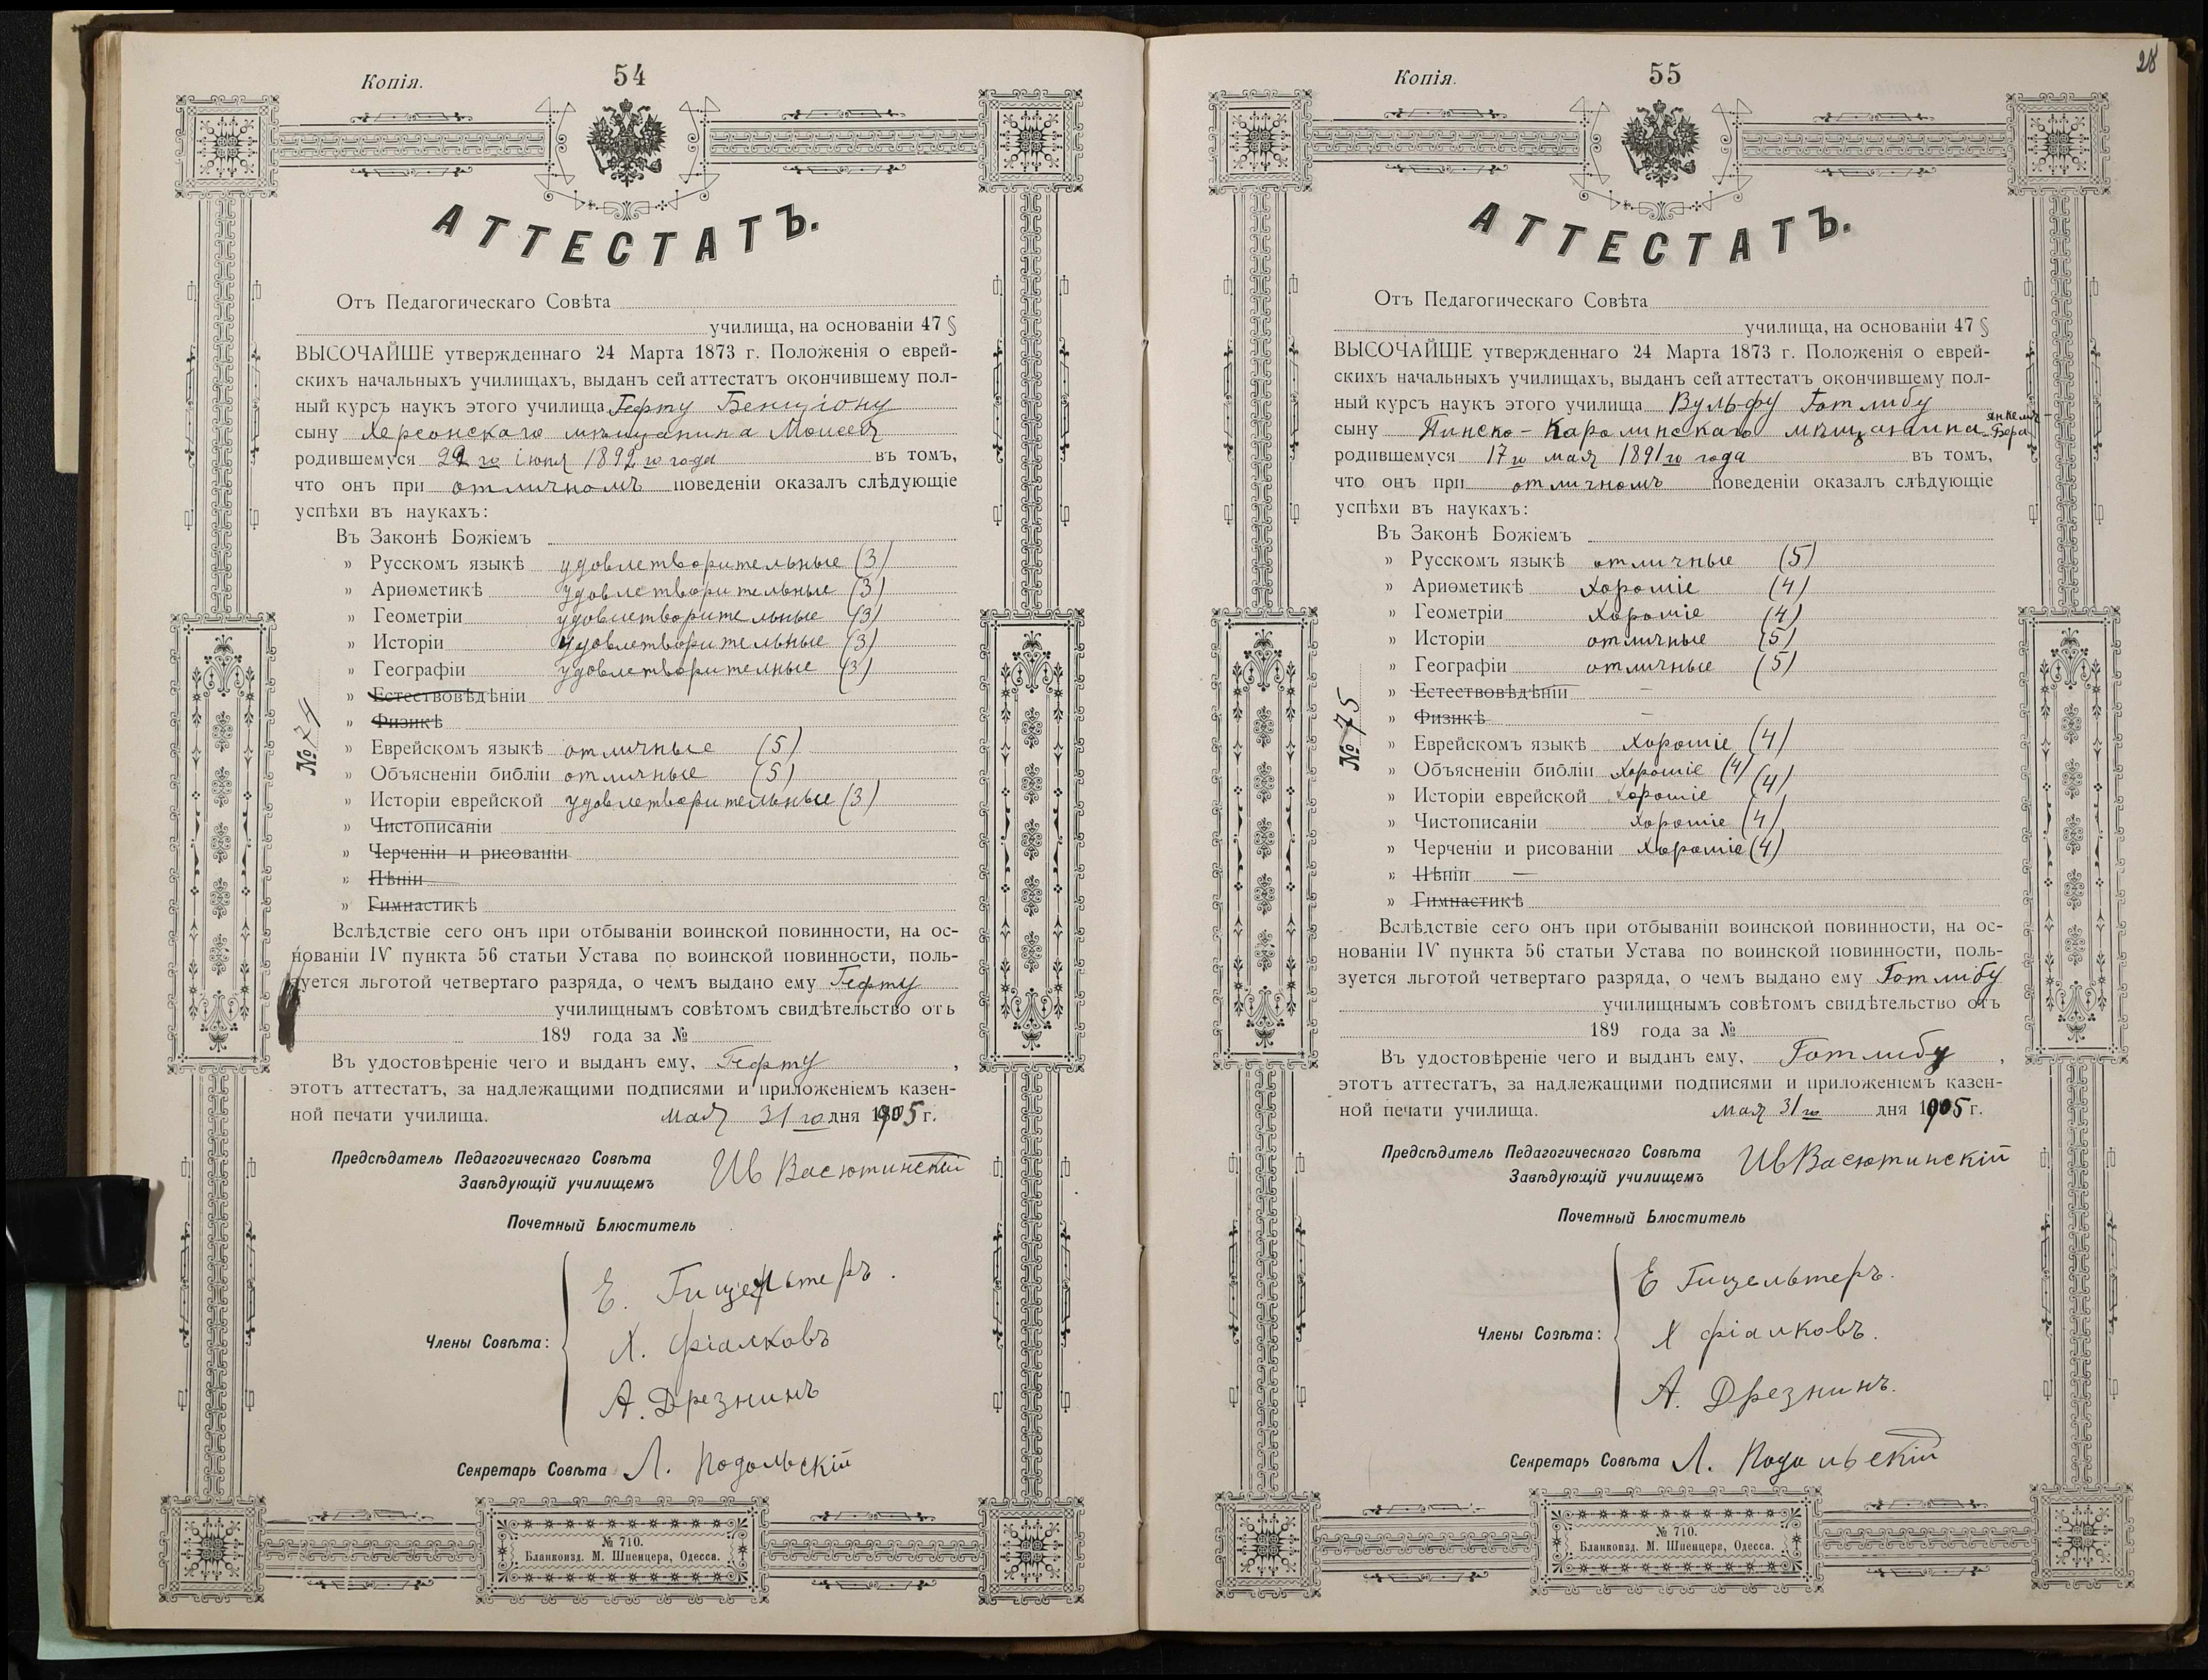 Копія.
54
АТТЕСТАТЪ.
Отъ Педагогическаго Совѣта
училища, на основаніи 47 §
ВЫСОЧАЙШЕ утвержденнаго 24 Марта 1873 г. Положенія о еврей-
скихъ начальныхъ училищахъ, выданъ сей аттестатъ окончившему пол-
ный курсъ наукъ этого училища Гефту Бенціону
сыну Херсонскаго мѣщанина Моисея
родившемуся го іюня 1892 го года въ томъ,
что онъ при отличномъ поведеніи оказалъ слѣдующіе
успѣхи въ наукахъ:
Въ Законѣ Божіемъ
" Русскомъ языкѣ удовлетворительные (3)
" Ариѳметикѣ удовлетворительные (3)
" Геометріи удовлетворительные (3)
" Исторіи удовлетворительные (3)
" Географіи удовлетворителные (3)
" Естествовѣдѣніи
" Физикѣ
" Еврейскомъ языкѣ отличные (5)
" Объясненіи библіи отличные (5)
" Исторіи еврейской удовлетворительные (3)
" Чистописаніи
" Черченіи и рисованіи
" Пѣніи
" Гимнастикѣ
№ 74
Вслѣдствіе сего онъ при отбываніи воинской повинности, на ос-
нованіи IV пункта 56 статьи Устава по воинской повинности, поль-
зуется льготой четвертаго разряда, о чемъ выдано ему Гефту
училищнымъ совѣтомъ свидѣтельство отъ
189 года за №
Въ удостовѣреніе чего и выданъ ему, Гефту ,
этотъ аттестатъ, за надлежащими подписями и приложеніемъ казен-
ной печати училища. мая 31 го дня 1905 г.
Предсѣдатель Педагогическаго Совѣта
Завѣдующій училищемъ Ив Васютинскій
Почетный Блюститель
Е. Гицельтеръ.
Члены Совѣта: Х. Фіалковъ
А. Дрезнинъ
Секретарь Совѣта Л. Подольскій
№ 710.
Бланкоизд. М. Шпенцера, Одесса.
28
Копія.
55
АТТЕСТАТЪ.
Отъ Педагогическаго Совѣта
училища, на основаніи 47 §
ВЫСОЧАЙШЕ утвержденнаго 24 Марта 1873 г. Положенія о еврей-
скихъ начальныхъ училищахъ, выданъ сей аттестатъ окончившему пол-
ный курсъ наукъ этого училища Вульфу Готлибу
сыну Пинско-Каролинскаго мѣщанина Янкеля-Бера
родившемуся 17 го мая 1891 го года въ томъ,
что онъ при отличномъ поведеніи оказалъ слѣдующіе
успѣхи въ наукахъ:
Въ Законѣ Божіемъ
" Русскомъ языкѣ отличные (5)
" Ариѳметикѣ хорошіе (4)
" Геометріи хорошіе (4)
" Исторіи отличные (5)
" Географіи отличные (5)
" Естествовѣдѣніи —
" Физикѣ —
" Еврейскомъ языкѣ хорошіе (4)
" Объясненіи библіи хорошіе (4)
" Исторіи еврейской хорошіе (4)
" Чистописаніи хорошіе (4)
" Черченіи и рисованіи хорошіе (4)
" Пѣніи —
" Гимнастикѣ
№ 75
Вслѣдствіе сего онъ при отбываніи воинской повинности, на ос-
нованіи IV пункта 56 статьи Устава по воинской повинности, поль-
зуется льготой четвертаго разряда, о чемъ выдано ему Готлибу
училищнымъ совѣтомъ свидѣтельство отъ
189 года за №
Въ удостовѣреніе чего и выданъ ему, Готлибу ,
этотъ аттестатъ, за надлежащими подписями и приложеніемъ казен-
ной печати училища. мая 31 го дня 1905 г.
Предсѣдатель Педагогическаго Совѣта
Завѣдующій училищемъ Ив Васютинскій
Почетный Блюститель
Е Гицельтеръ.
Члены Совѣта: Х Фіалковъ.
А. Дрезнинъ.
Секретарь Совѣта Л. Подольскій
№ 710.
Бланкоизд. М. Шпенцера, Одесса.